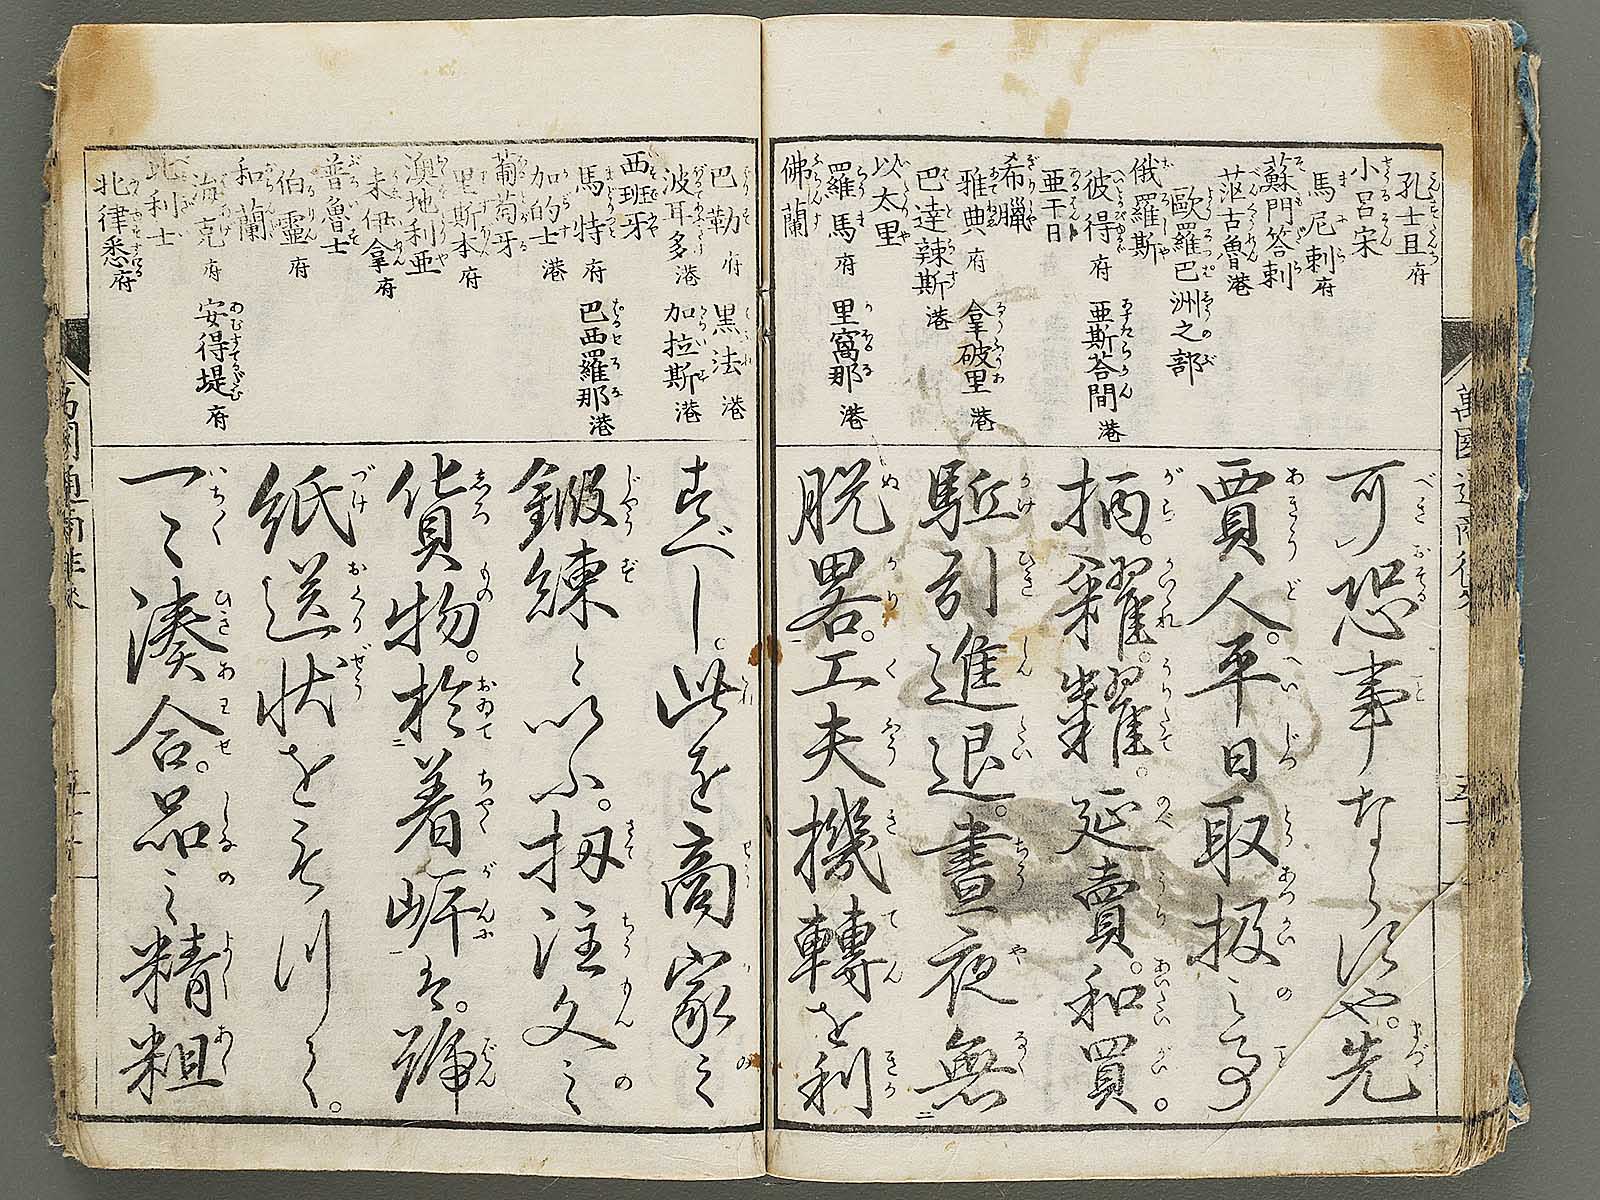 孔士且府
小呂宋
馬尼剌府
蘇門答剌
茲古魯港
歐羅巴洲之部
俄羅斯
彼得府 亜斯答間港
亜干日
希臘
雅典府 拿破里港
巴達辣斯港
以太里
羅馬府 里窩那港
佛蘭
可恐事ならずや。先
賈人平日取扱之事
柄。糴糶。延賣。和買。
駈引進退。晝夜無
脱畧。工夫機轉を利
巴勒府 黒法港
波耳多港 加拉斯港
西班牙
馬特府 巴西羅那港
加的士港
葡萄牙
里斯本府
澳地利亜
未伊拿府
普魯士
伯靈府
和蘭
海克府 安得堤府
比利士
北律悉府
すべし。此を商家之
鍛練といふ。扨注文之
貨物。於着岸は。號
紙送状を以て。
一々湊合。品之精粗
萬國通商往来